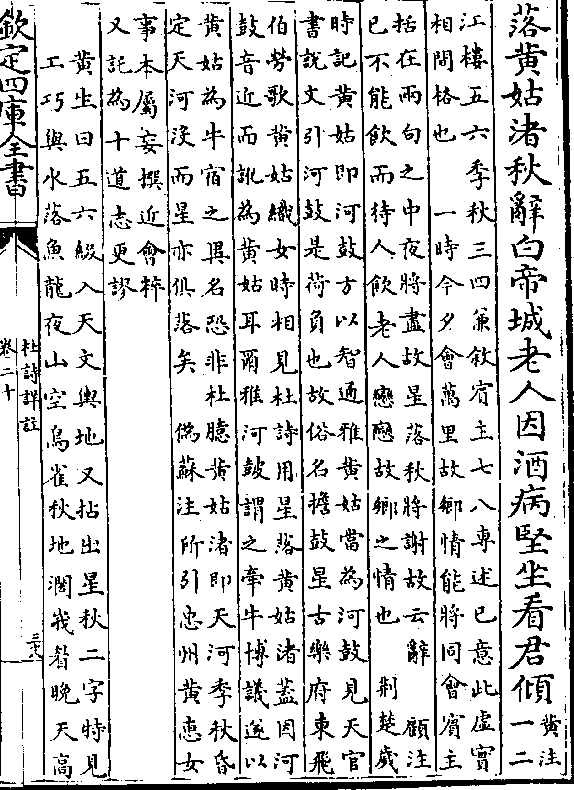 落黄姑渚秋辭白帝城老人因酒病堅坐看君傾黄注
一二
江樓五六季秋三四兼敘賔主七八專述已意此虚實
相間格也 一時今夕會萬里故鄉情能將同會賔主
括在兩句之中夜將盡故星落秋將謝故云辭 顧注
已不能飲而待人飲老人戀戀故鄉之情也 荆楚歲
時記黄姑即河鼓方以智通雅黄姑當為河鼓見天官
書説文引河鼓是荷負也故俗名擔鼓星古樂府東飛
伯勞歌黄姑織女時相見杜詩用星落黄姑渚蓋因河
鼓音近而訛為黄姑耳爾雅河鼓謂之牽牛博議遂以
黄姑為牛宿之異名恐非杜臆黄姑渚即天河季秋昏
定天河沒而星亦俱落矣 偽蘇注所引忠州黄恵女
事本屬妄撰近會粹
又託為十道志更謬
黄生曰五六綴入天文輿地又拈出星秋二字特見
工巧與水落魚龍夜山空鳥雀秋地濶峩眉晚天高
欽定四庫全書
杜詩詳註
卷二十